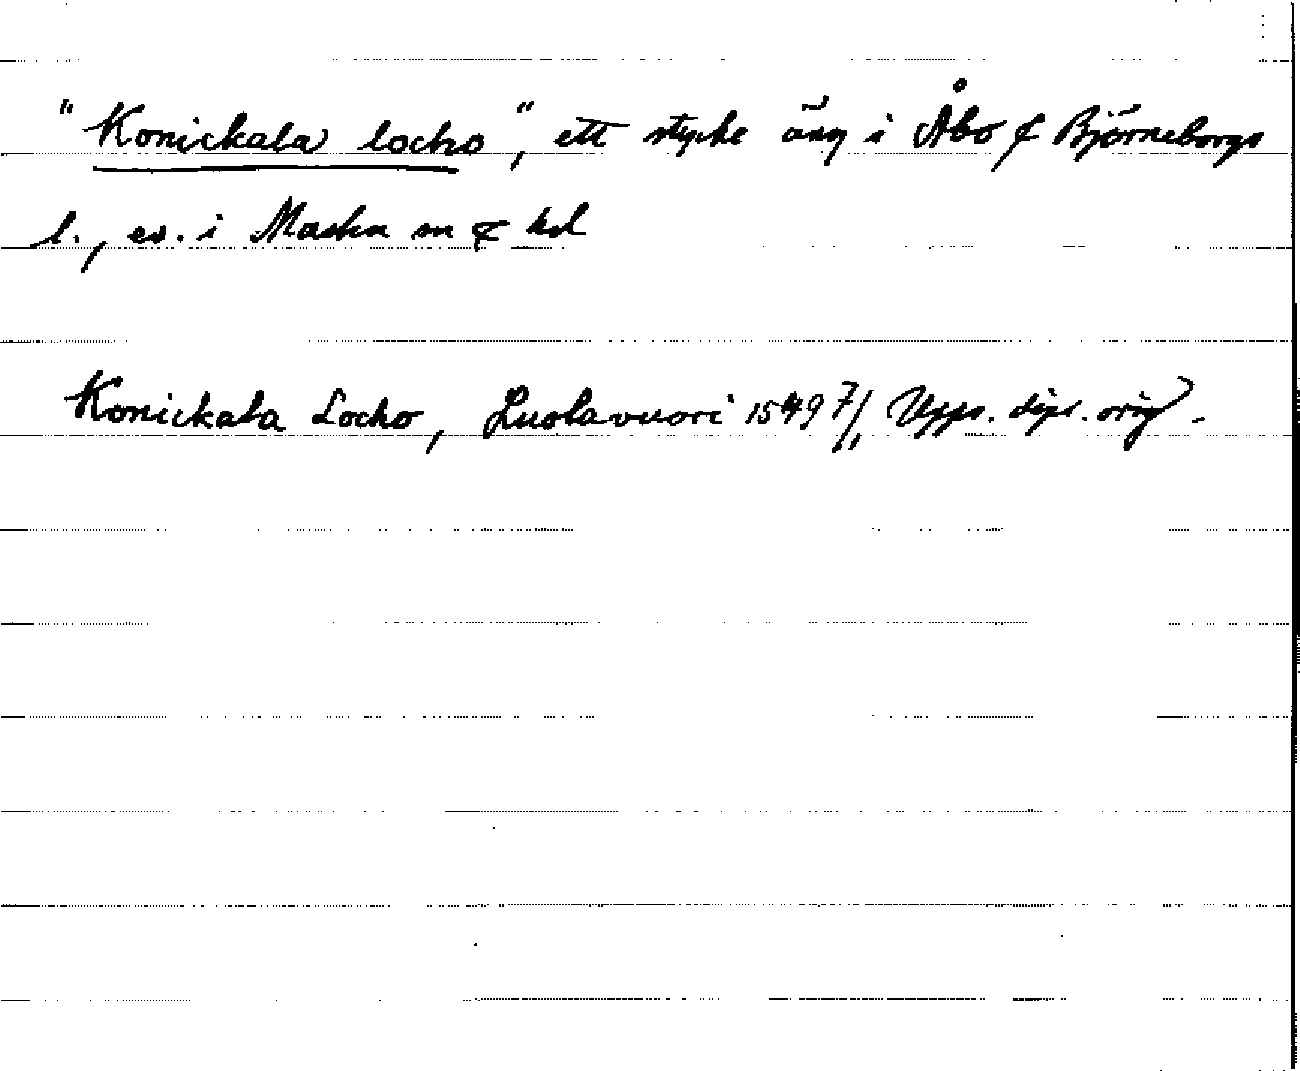 "Konickala locho", ett stycke äng i Åbo & Björneborgs
l., ev. i Masku sn & hd
Konickala Locho, Luolavuori 1549 7/1, Upps. dipl. orig.